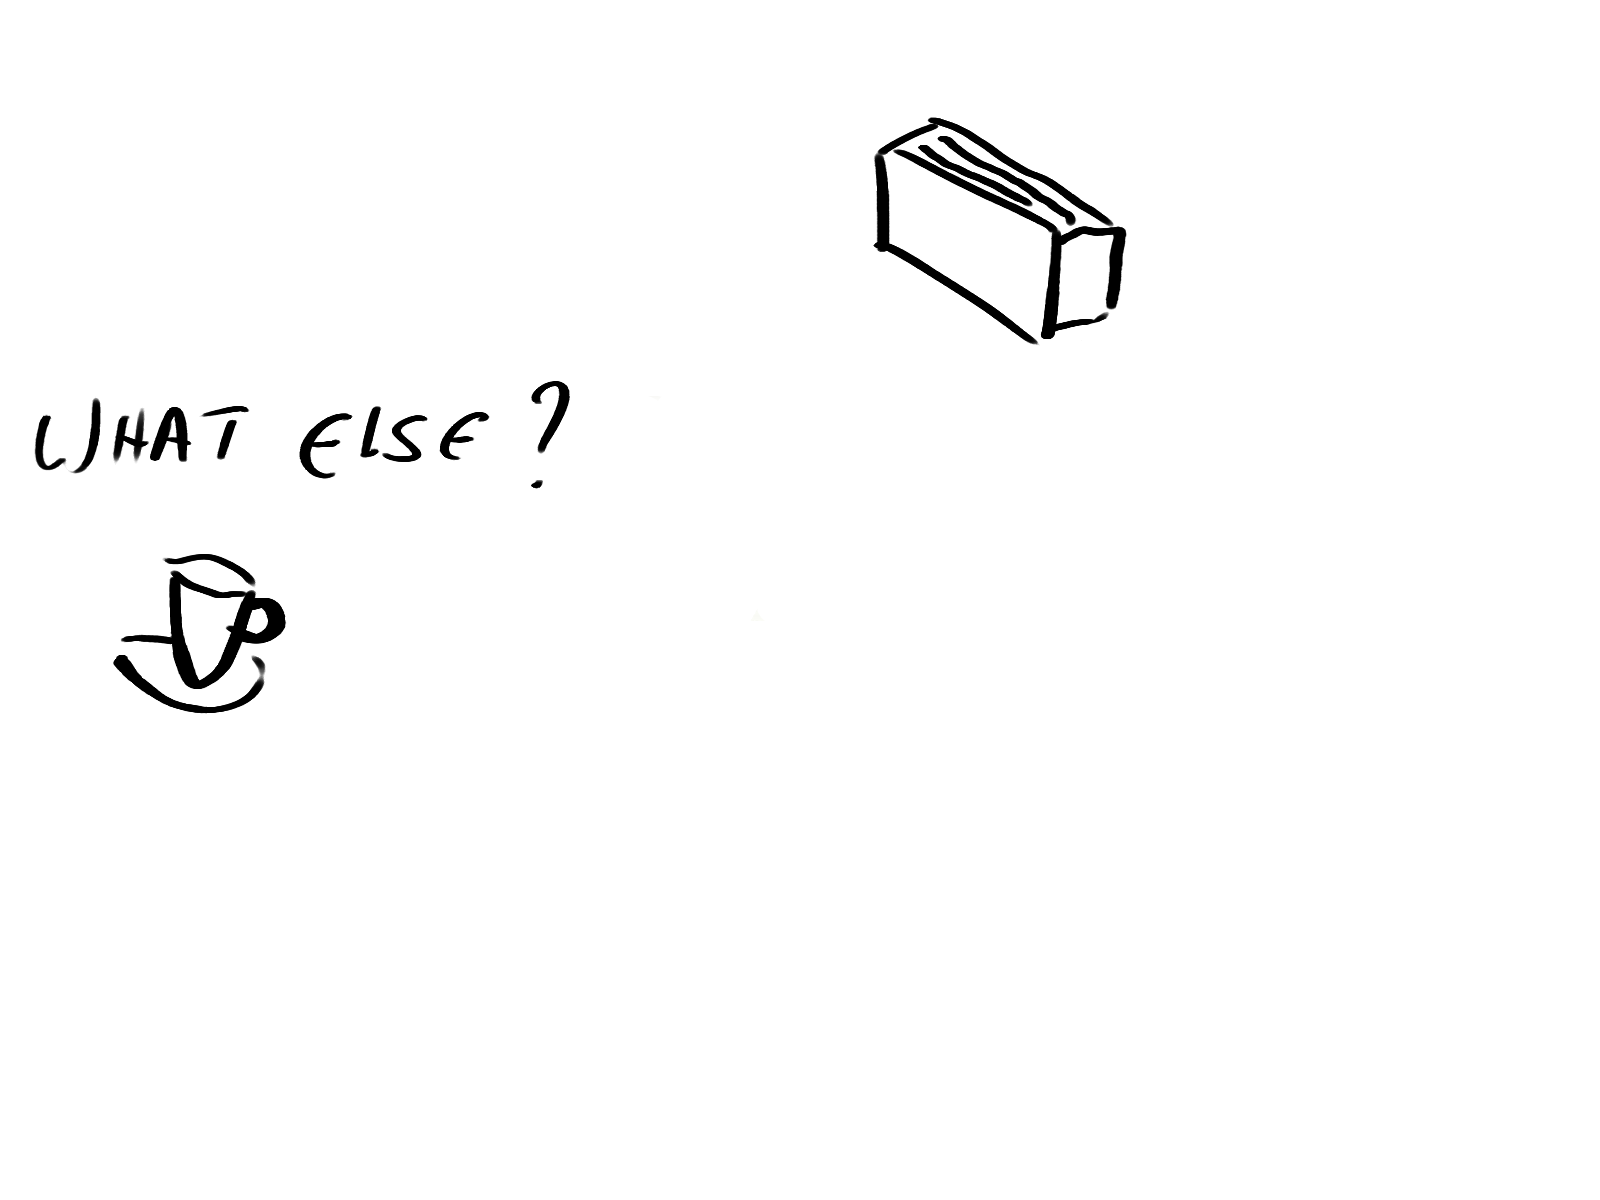 WHAT ELSE?